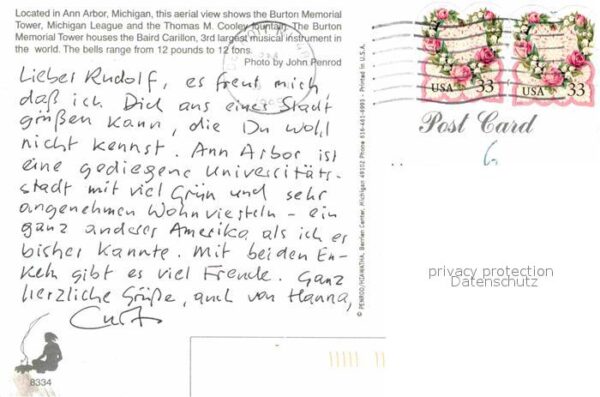 Located in Ann Arbor, Michigan, this aerial view shows the Burton Memorial
Tower, Michigan League and the Thomas M. Cooley fountain. The Burton
Memorial Tower houses the Baird Carillon, 3rd largest musical instrument in
the world. The bells range from 12 pounds to 12 tons.
Photo by John Penrod
Lieber Rudolf, es freut mich,
daß ich Dich aus einer Stadt
grüßen kann, die Du wohl
nicht kennst. Ann Arbor ist
eine gediegene Universitäts-
stadt mit viel Grün und sehr
angenehmen Wohnvierteln – ein
ganz anderes Amerika als ich es
bisher kannte. Mit beiden En-
keln gibt es viel Freude. Ganz
herzliche Grüße, auch von Hanna,
Curt
8334
© PENROD/HIAWATHA, Berrien Center, Michigan 49102 Phone 616-461-6993 • Printed in U.S.A.
USA 33
USA 33
Post Card
privacy protection
Datenschutz